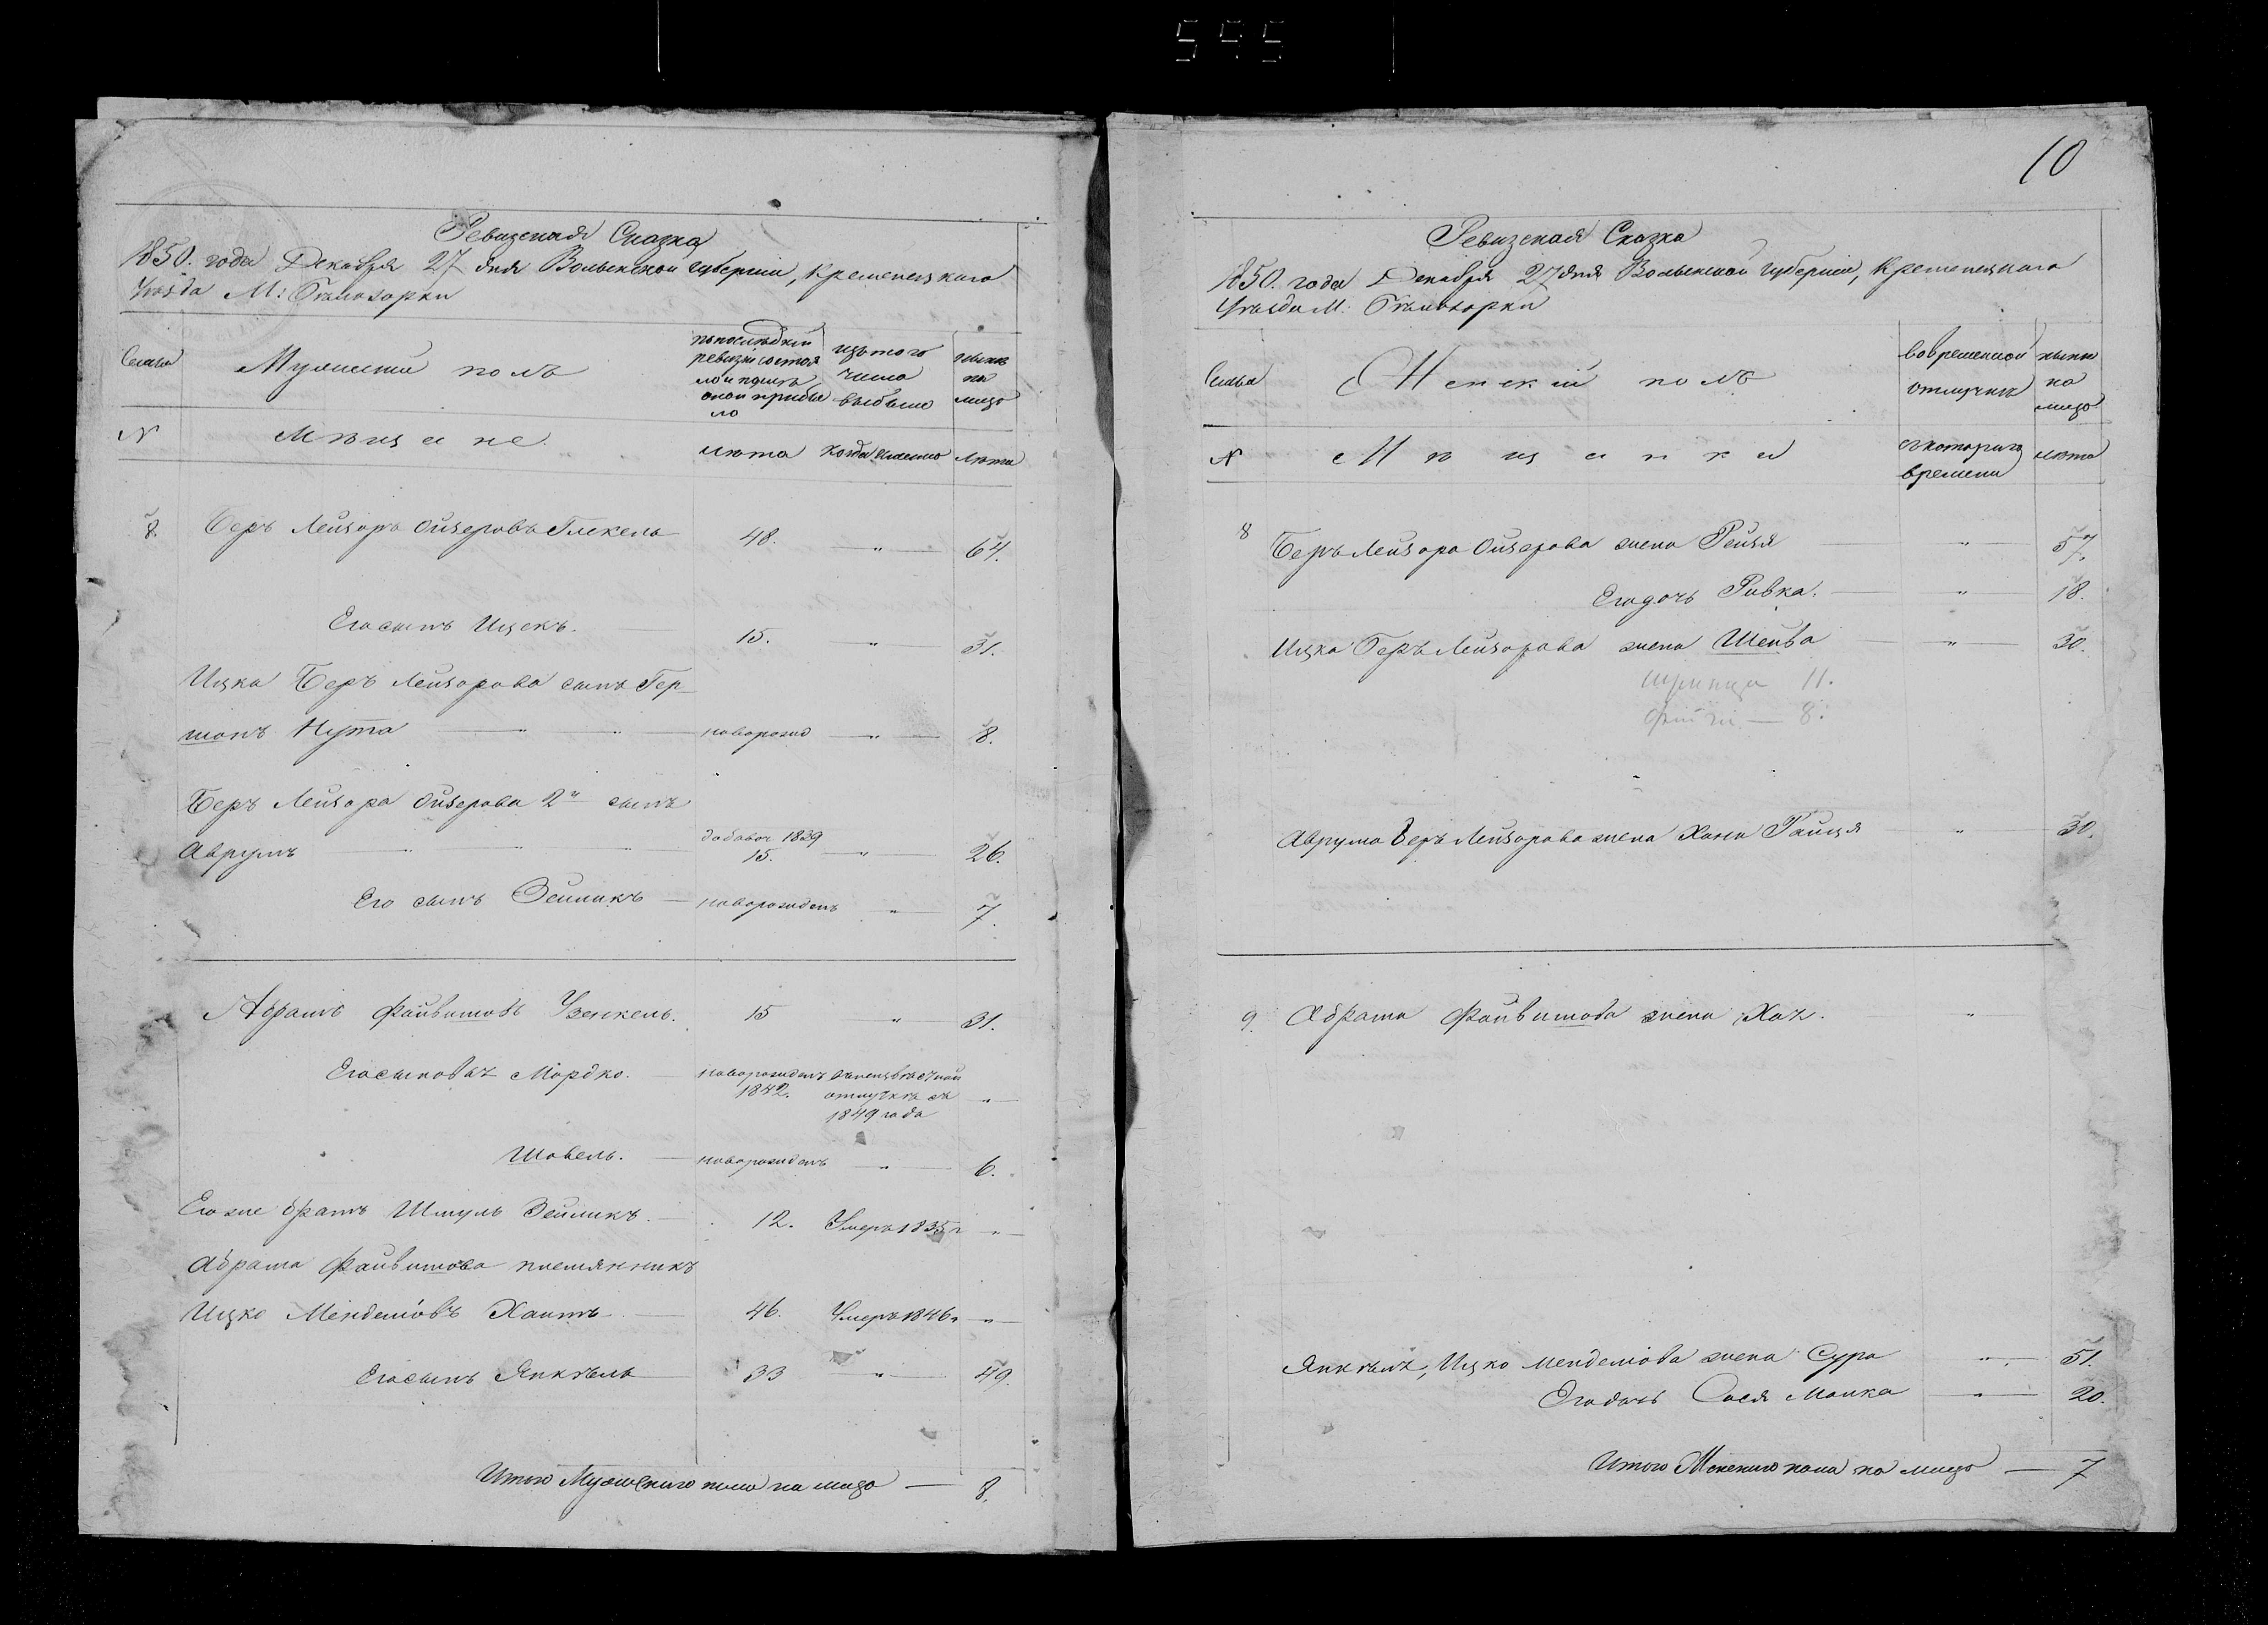 595
Ревизская Сказка
1850. года Декабря 27 дня Волынской губернии, Кременецкого
Уѣзда М: Бѣлозорки
Семья
Мужеский полъ
по последней ревизіи состояло и послѣ оной прибыло
изъ того числа выбыло
нынѣ на лицо
№
Мѣщане.
лѣта
когда именно
лѣта
8. Беръ Лейзоръ Ойзеровъ 48. " 64.
Его сынъ Ицекъ. 15. " 31.
Ицка Беръ Лейзорова сынъ Гер-
шонъ Нута " " новорожд " 8.
Беръ Лейзора Ойзерова 2й сынъ
добавоч 1839
Аврумъ " " " 15. " 26.
Его сынъ Зейликъ новорожденъ " 7.
Абрамъ Файвишовъ 15 " 31.
Его сыновья Мордко. новорожденъ
1842. отлучкѣ съ "
1849 года
Шовель. новорожденъ " 6.
Его же братъ Шмуль Зейликъ. 12. Умеръ 1835 г "
Абрама Файвишова племянникъ
Ицко Менделіовъ 46. Умеръ 1846 г "
Его сынъ Янкѣль 33 " 49.
Итого Мужеского пола на лицо 8.
10
Ревизская Сказка
1850. года Декабря 27 дня Волынской губерніи, Кременецкого
Уѣзда М: Бѣлозорки
Семья
Женский полъ
во временной отлучкѣ
нынѣ на лицо
№
Мѣщанки
съ которого времени
лѣта
8 Беръ Лейзора Ойзерова жена Рейзя " 57.
Его дочь Ривка. " 18.
Ицка Беръ Лейзорова жена Шейва " 30.
11.
8.
Аврума Беръ Лейзорова жена Хана " 30.
9. Абрама Файвишова жена Хая. "
Янкѣля, Ицко Менделіова жена Сура " 51.
Его дочь Сося Малка " 20.
Итого Женского пола на лицо 7